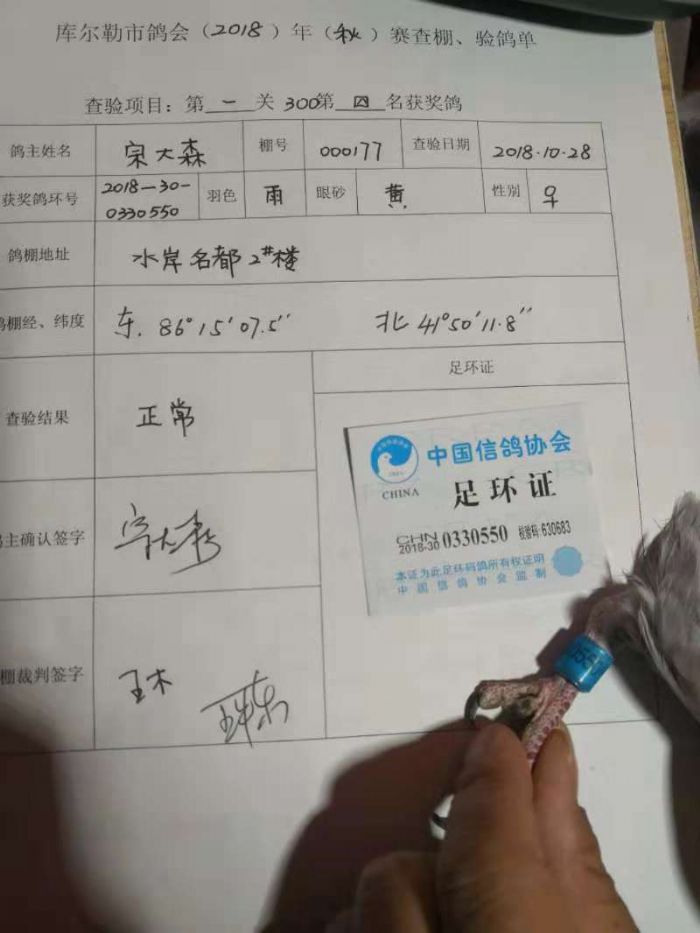 库尔勒市鸽会（2018）年（秋）赛查棚、验鸽单
查验项目：第一关300第四名获奖鸽
鸽主姓名 宋大森 棚号 000177 查验日期 2018·10·28
获奖鸽环号 2018-30-0330550 羽色 雨 眼砂 黄 性别 ♀
鸽棚地址 水岸名都2#楼
鸽棚经、纬度 东.86°15′07.5″ 北41°50′11.8″
查验结果 正常
足环证
中国信鸽协会
CHINA
足环证
CHN
2018-30 0330550 校验码:630683
本证为此足环码鸽所有权证明
中国信鸽协会监制
鸽主确认签字 宋大森
棚裁判签字 王木
55